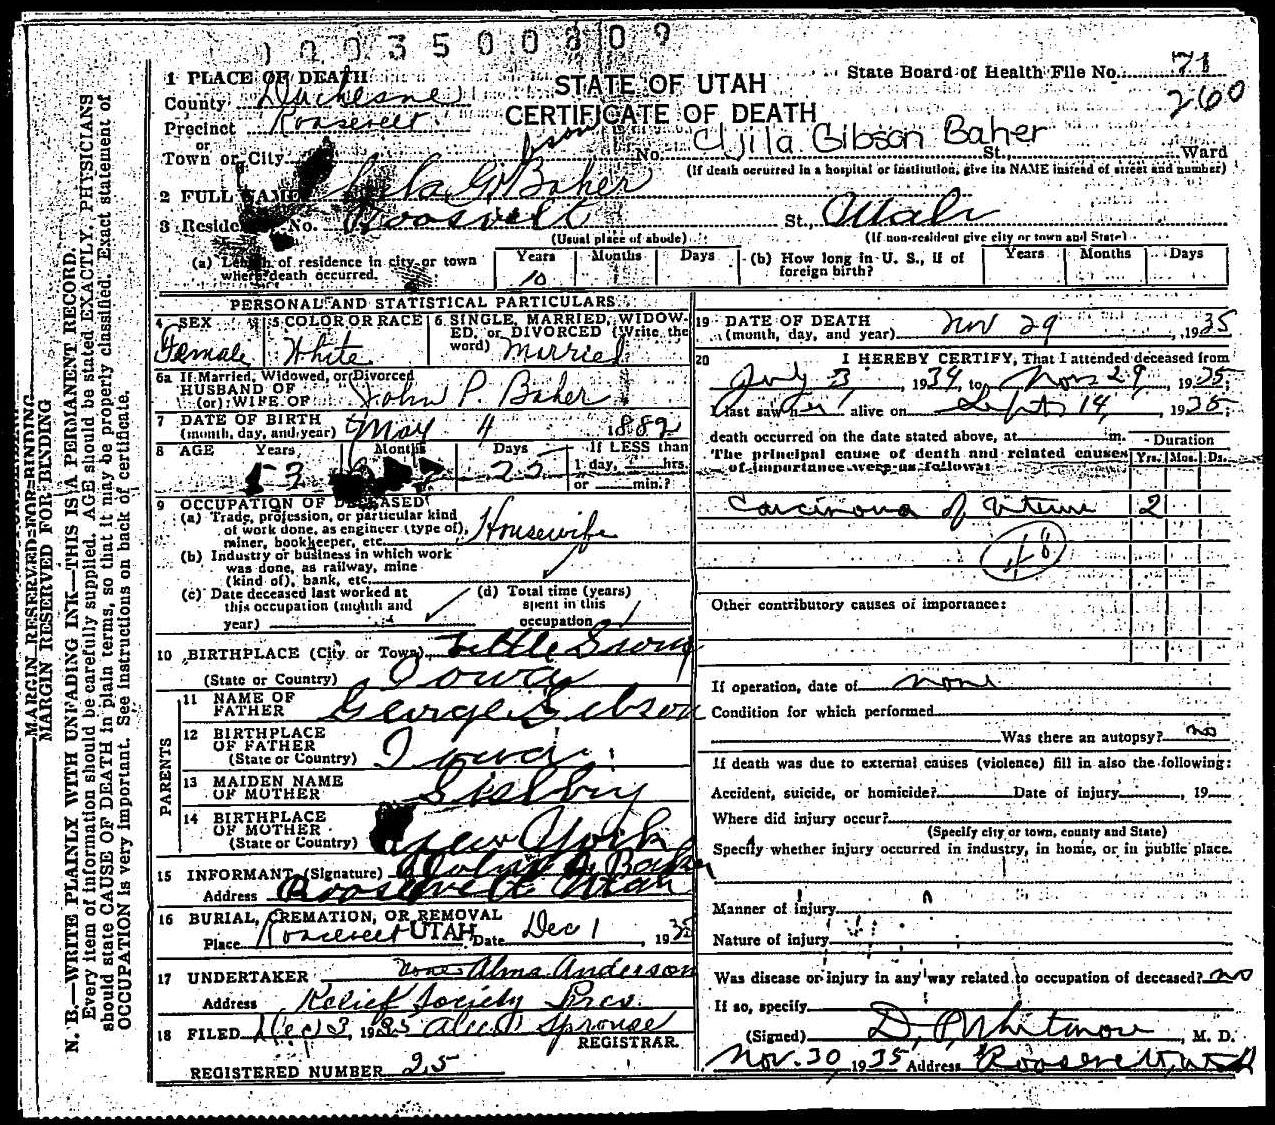 1003500809
1 PLACE OF DEATH
County Duchesne
Precinct Roosevelt
or
Town or City
STATE OF UTAH
CERTIFICATE OF DEATH
State Board of Health File No. 71
260
No. Gibson Baher St., Ward
(If death occurred in a hospital or institution, give its NAME instead of street and number)
2 FULL NAME G. Baher
3 Residence No. Roosvelt St., Utah
(Usual place of abode) (If non-resident give city or town and State)
(a) Length of residence in city or town where death occurred. Years 10 Months Days (b) How long in U. S., if of foreign birth? Years Months Days
PERSONAL AND STATISTICAL PARTICULARS
4 SEX Female
5 COLOR OR RACE White
6 SINGLE, MARRIED, WIDOWED, or DIVORCED (Write the word) Married
6a If Married, Widowed, or Divorced
HUSBAND OF
(or) WIFE OF John P. Baher
7 DATE OF BIRTH
(month, day, and year) May 4 1882
8 AGE Years 53 Months Days 25 If LESS than
1 day, hrs.
or min.?
9 OCCUPATION OF DECEASED
(a) Trade, profession, or particular kind
of work done, as engineer (type of),
miner, bookkeeper, etc. Housewife
(b) Industry or business in which work
was done, as railway, mine
(kind of), bank, etc.
(c) Date deceased last worked at
this occupation (month and
year)
(d) Total time (years)
spent in this
occupation
10 BIRTHPLACE (City or Town) Little
(State or Country) Iowa
PARENTS
11 NAME OF
FATHER George Gibson
12 BIRTHPLACE
OF FATHER
(State or Country) Iowa
13 MAIDEN NAME
OF MOTHER
14 BIRTHPLACE
OF MOTHER
(State or Country) New York
15 INFORMANT (Signature) Baher
Address Roosevelt Utah
16 BURIAL, CREMATION, OR REMOVAL
Place Roosevelt UTAH Date Dec 1, 1935
17 UNDERTAKER none Alma Anderson
Address Relief Society Pres.
18 FILED Dec 3, 1935 Sprouse
REGISTRAR.
REGISTERED NUMBER 25
19 DATE OF DEATH
(month, day, and year) Nov 29, 1935
20 I HEREBY CERTIFY, That I attended deceased from
July 3, 1934, to Nov 29, 1935;
I last saw her alive on Sept 14, 1935;
death occurred on the date stated above, at m.
The principal cause of death and related causes
of importance were as follows:
Duration
Yrs. Mos. Ds.
Carcinoma of Uterus 2
48
Other contributory causes of importance:
If operation, date of none
Condition for which performed
Was there an autopsy? no
If death was due to external causes (violence) fill in also the following:
Accident, suicide, or homicide? Date of injury, 19
Where did injury occur?
(Specify city or town, county and State)
Specify whether injury occurred in industry, in home, or in public place.
Manner of injury
Nature of injury
Was disease or injury in any way related to occupation of deceased? no
If so, specify
(Signed) D. P. Whitmore, M. D.
Nov. 30, 1935 Address Roosevelt, Utah
MARGIN RESERVED FOR BINDING
MARGIN RESERVED FOR BINDING
N. B.—WRITE PLAINLY WITH UNFADING INK—THIS IS A PERMANENT RECORD.
Every item of information should be carefully supplied. AGE should be stated EXACTLY. PHYSICIANS
should state CAUSE OF DEATH in plain terms, so that it may be properly classified. Exact statement of
OCCUPATION is very important. See instructions on back of certificate.